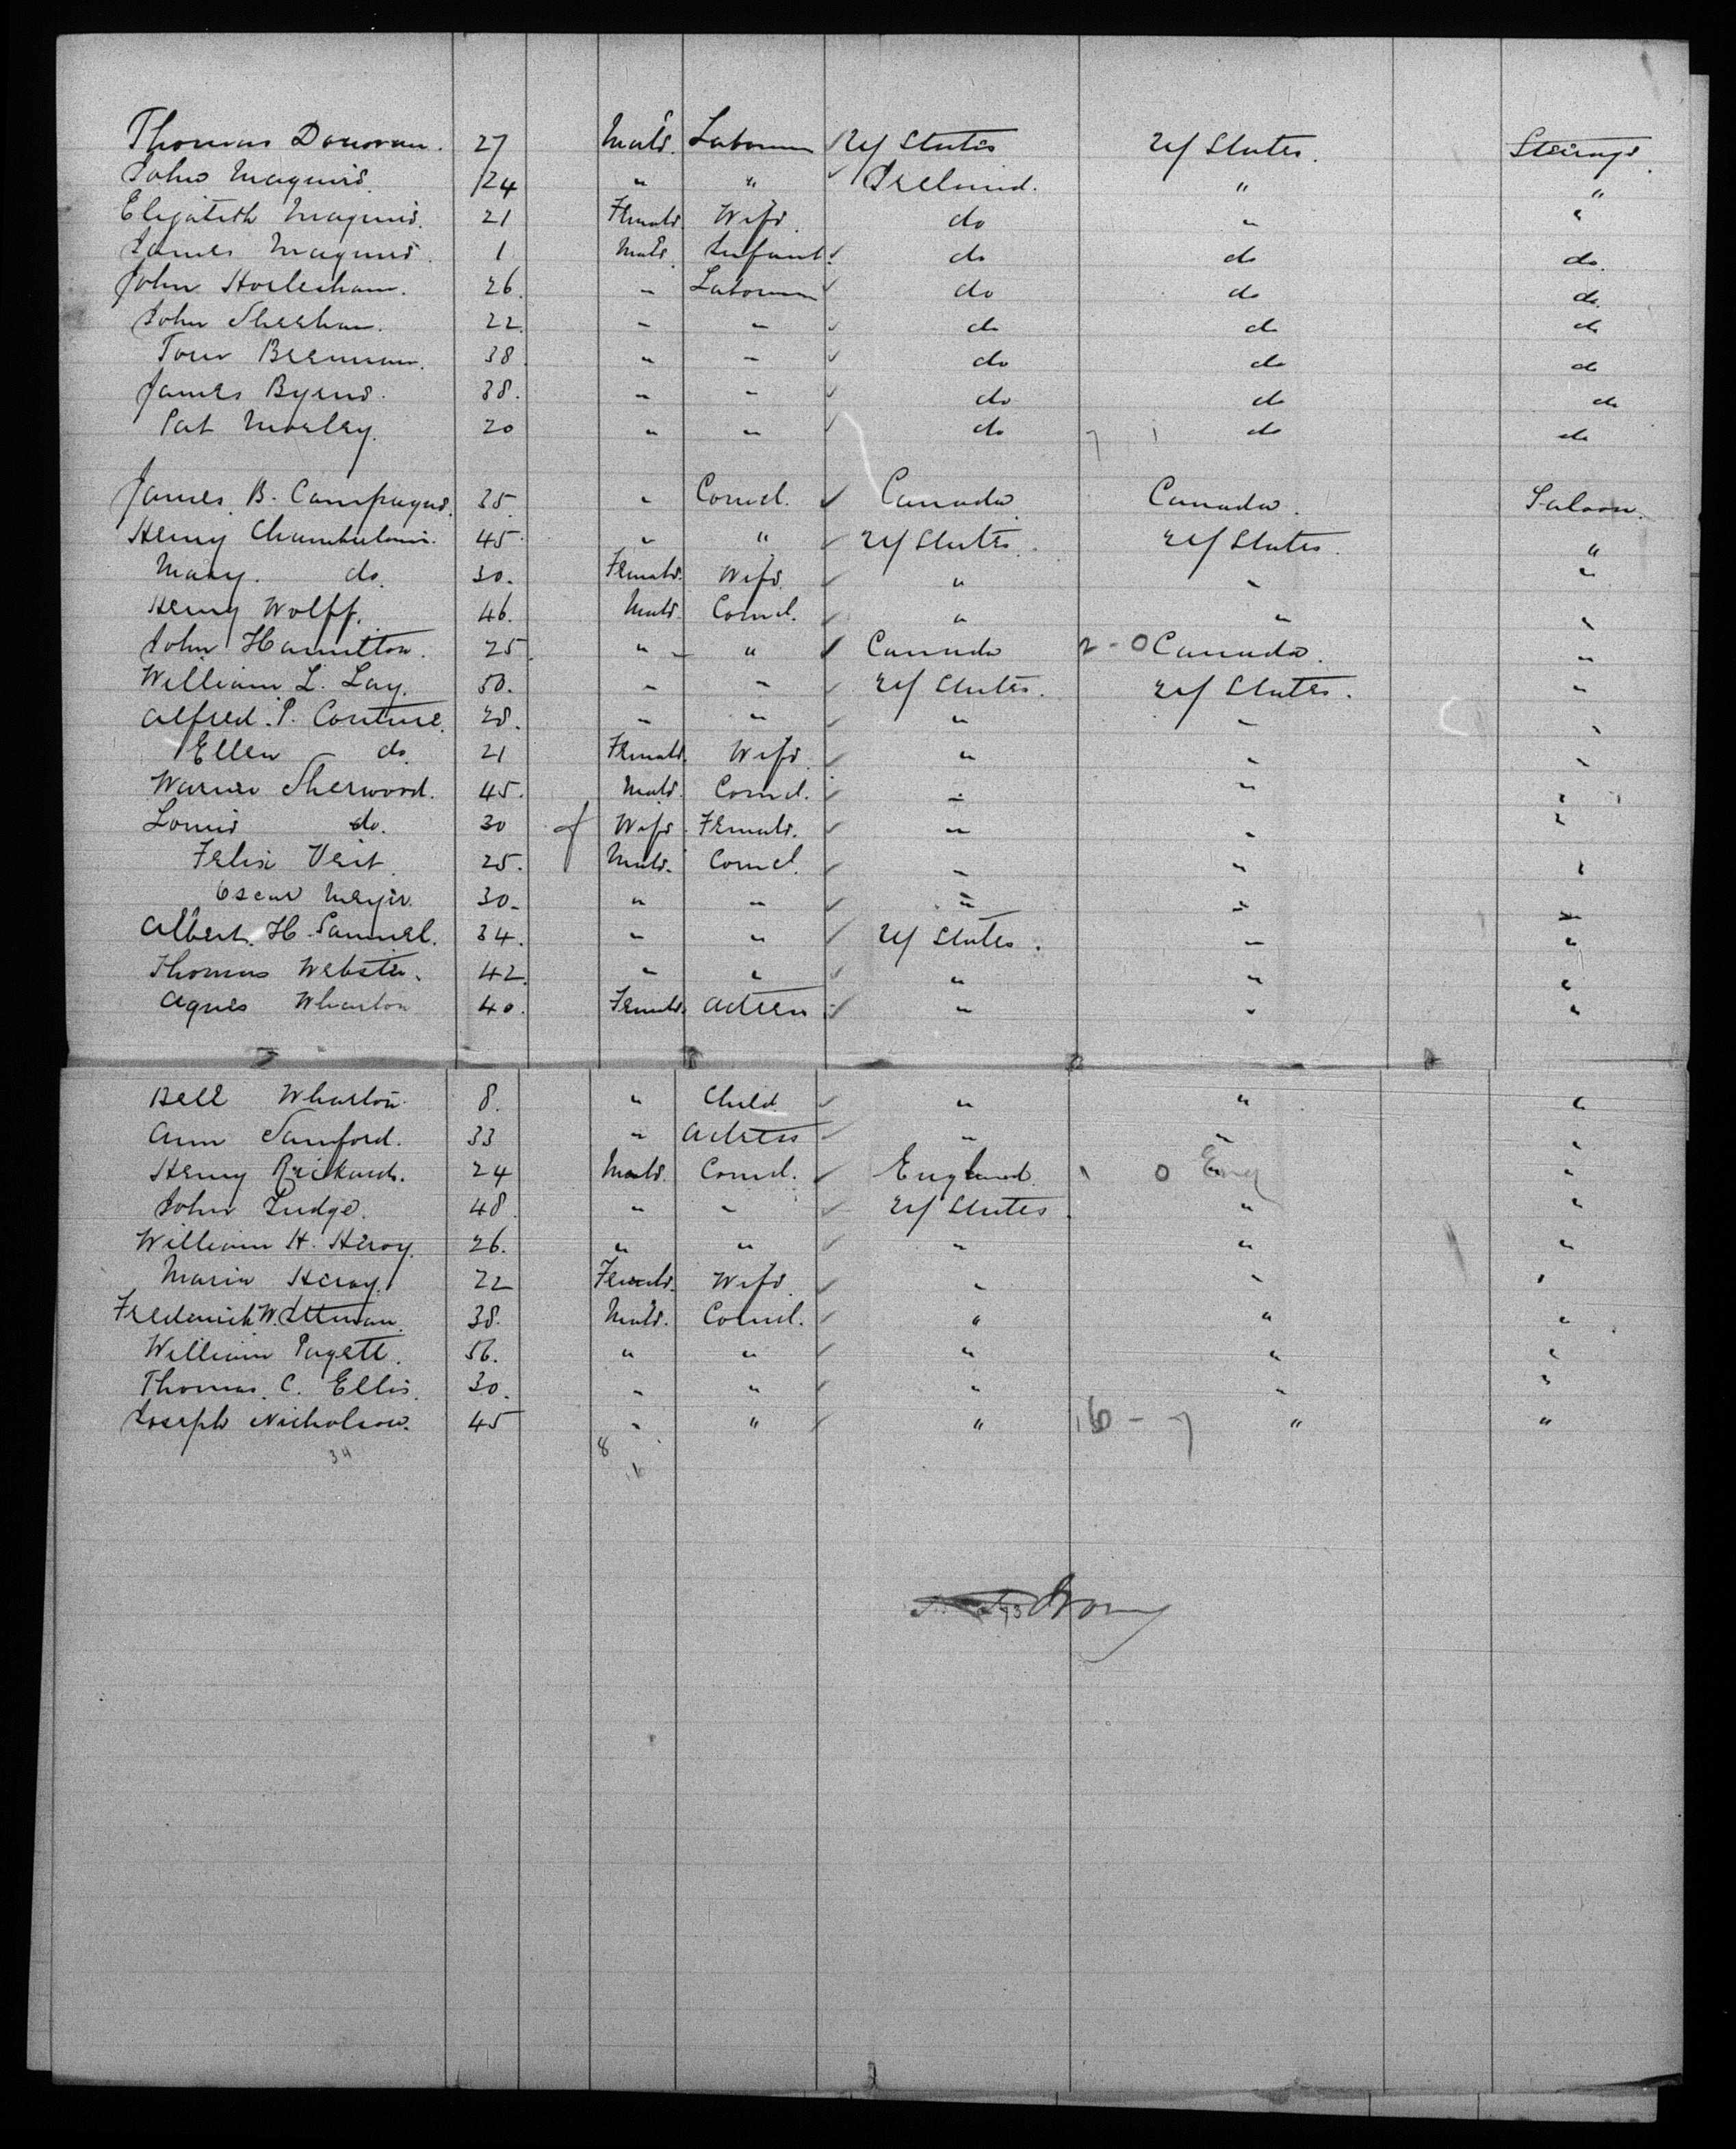 Thomas Donovan. 27 Male. Laborer U/ States U/ States. Steerage.
John Maguire. 24 " " Ireland. " "
Elizabeth Maguire. 21 Female Wife. do " "
James Maguire. 1 Male. Infant. do do do.
John 26. " Laborer do do do.
John Sheehan. 22. " " do do do
Tom Brennan. 38. " " do do do
James Byrne. 38. " " do do do
Pat Morley. 20 " " do do do
James. B. Campagne. 35. " Comcl. Canada. Canada. Saloon.
Henry Chamberlain. 45. " " U/ States. U/ States. "
Mary. do. 30. Female. Wife. " " "
Henry Wolff. 46. Male. Comcl. " " "
John Hamilton. 25. " " Canada 2 - 0 Canada. "
William L. Lay. 50. " " U/ States. U/ States. "
Alfred. P. Couture. 28. " " " " "
Ellen do. 21 Female. Wife. " " "
Warner Sherwood. 45. Male. Comcl. " " "
Louis do. 30 Wife. Female. " " "
Felix Veit. 25. Male. Comcl. " " "
Oscar Meyer. 30. " " " " "
Albert. H. Samuel. 34. " " U/ States. " "
Thomas Webster. 42. " " " " "
Agnes Wharton 40. Female. Actress " " "
Bell Wharton. 8. " Child " " "
Ann Samford. 33 " Actress " " "
Henry Rickards. 24 Male. Comcl. England. 1 0 Eng "
John Judge. 48. " " U/ States. " "
William H. Heroy. 26. " " " " "
Maria Heroy. 22 Female. Wife. " " "
Frederick W. 38. Male. Comcl. " " "
William Pagett. 56. " " " " "
Thomas. C. Ellis. 30. " " " " "
Joseph Nicholson. 45 " " " 16 - 7 " "
34 8